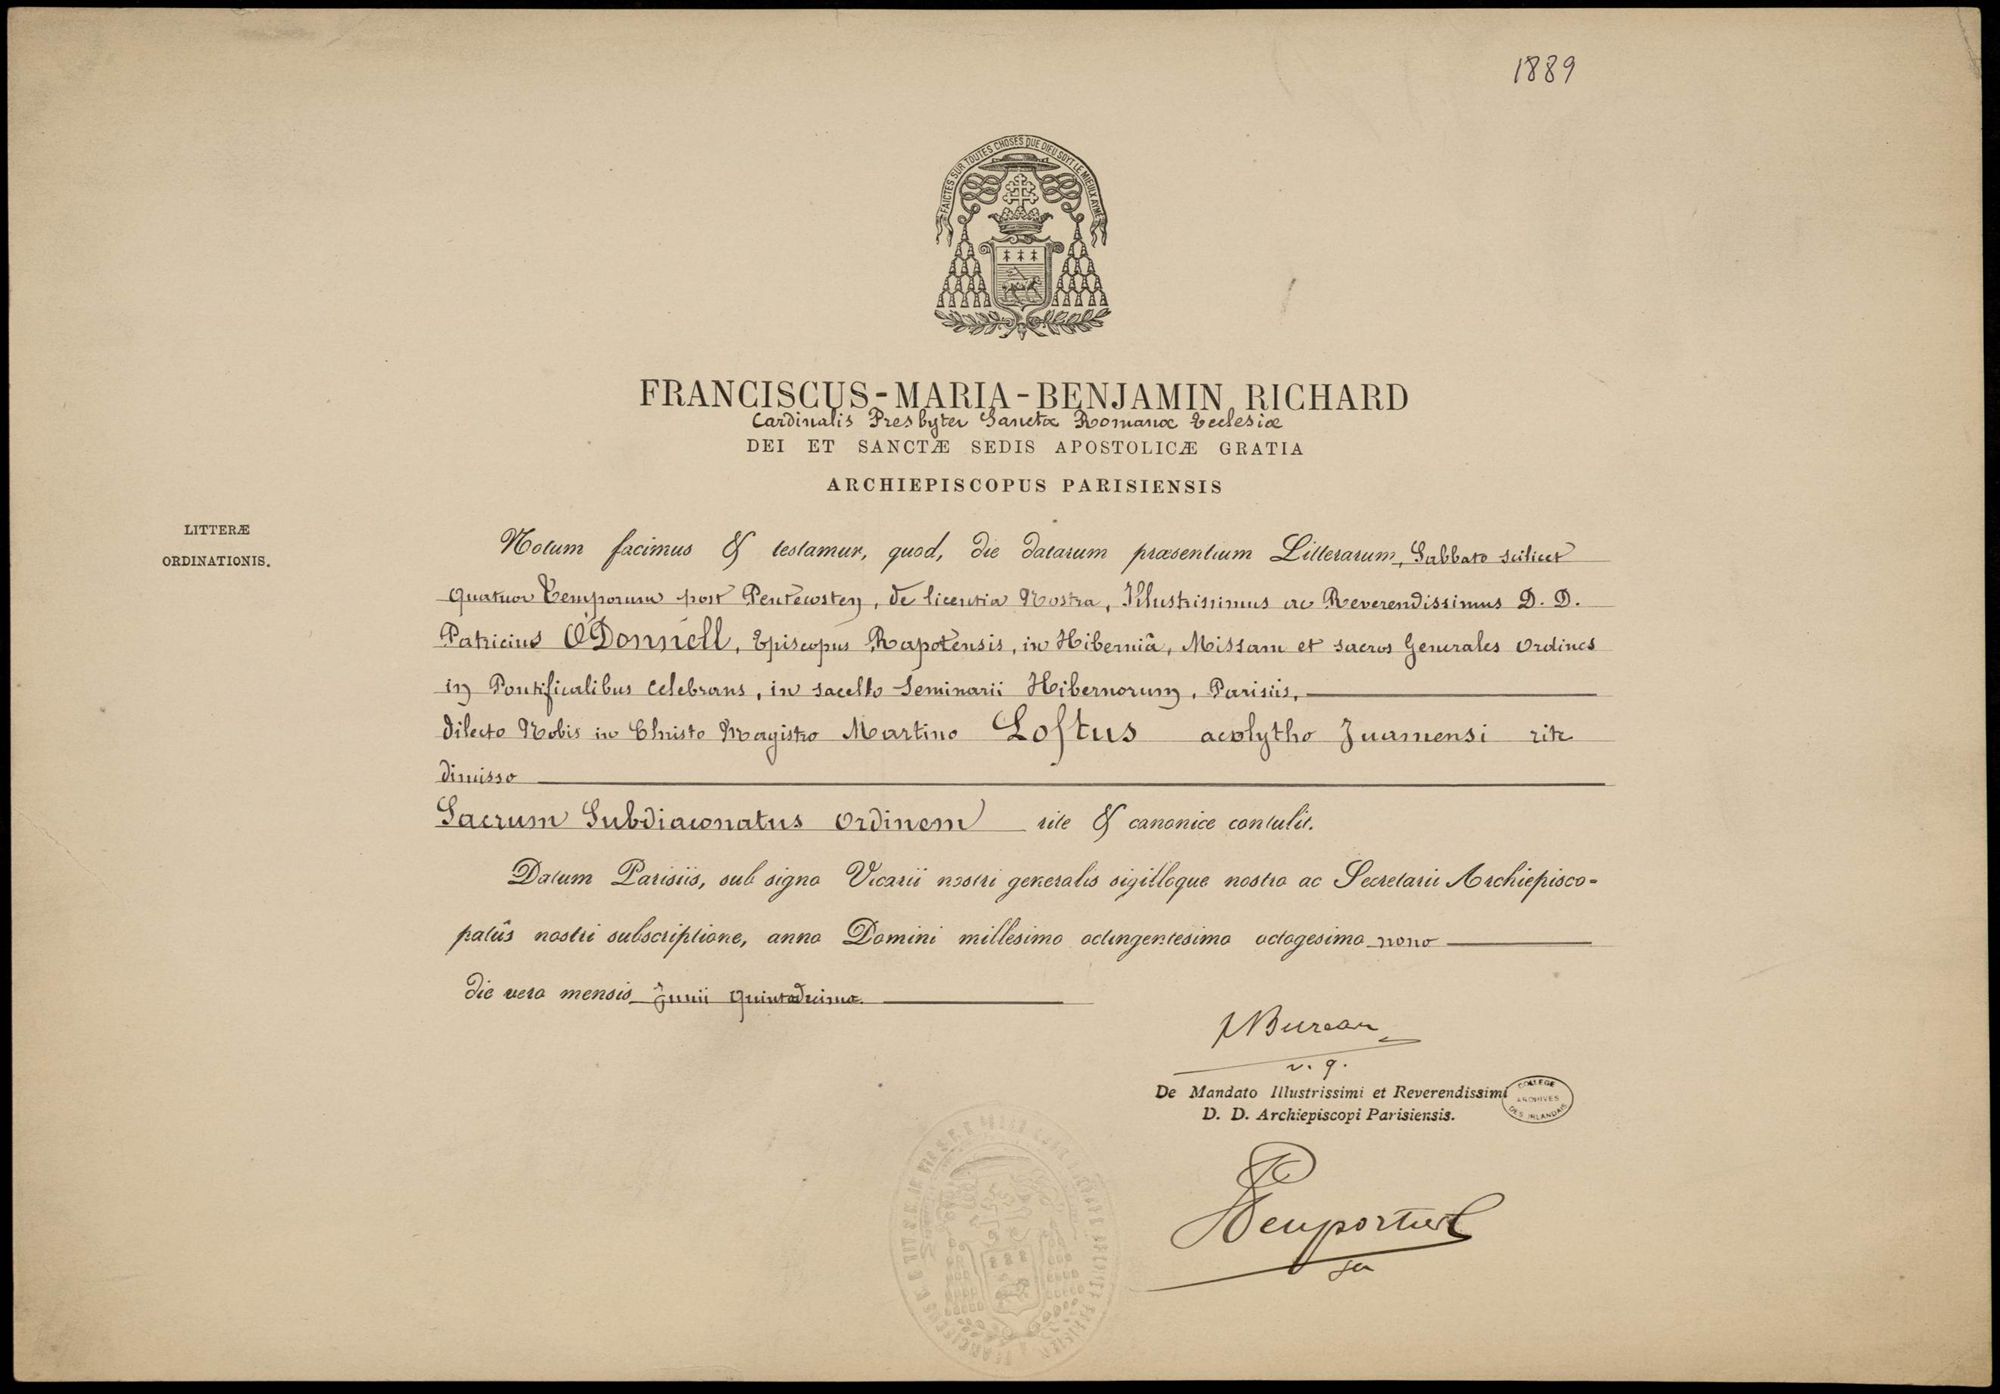 1889
FAICTES SUR TOUTES CHOSES QUE DIEU SOYT LE MIEULX AYMÉ
FRANCISCUS-MARIA-BENJAMIN RICHARD
Cardinalis Presbyter Sanctæ Romanæ Ecclesiæ
DEI ET SANCTÆ SEDIS APOSTOLICÆ GRATIA
ARCHIEPISCOPUS PARISIENSIS
LITTERÆ
ORDINATIONIS.
Notum facimus & testamur, quod, die datarum præsentium Litterarum, Sabbato scilicet
quatuor Temporum post Pentecosten, de licentia Nostra, Illustrissimus ac Reverendissimus D. D.
Patricius O'Donnell, Episcopus Rapotensis, in Hiberniâ, Missam et sacros Generales Ordines
in Pontificalibus celebrans, in sacello Seminarii Hibernorum, Parisiis,
dilecto Nobis in Christo Magistro Martino Loftus acolytho Tuamensi rite
dimisso
Sacrum Subdiaconatus Ordinem rite & canonice contulit.
Datum Parisiis, sub signo Vicarii nostri generalis sigilloque nostro ac Secretarii Archiepisco-
patûs nostri subscriptione, anno Domini millesimo octingentesimo octogesimo nono
die vero mensis Junii quintodecimo.
Bureau
v. g.
De Mandato Illustrissimi et Reverendissimi
D. D. Archiepiscopi Parisiensis.
COLLEGE
ARCHIVES
DES IRLANDAIS